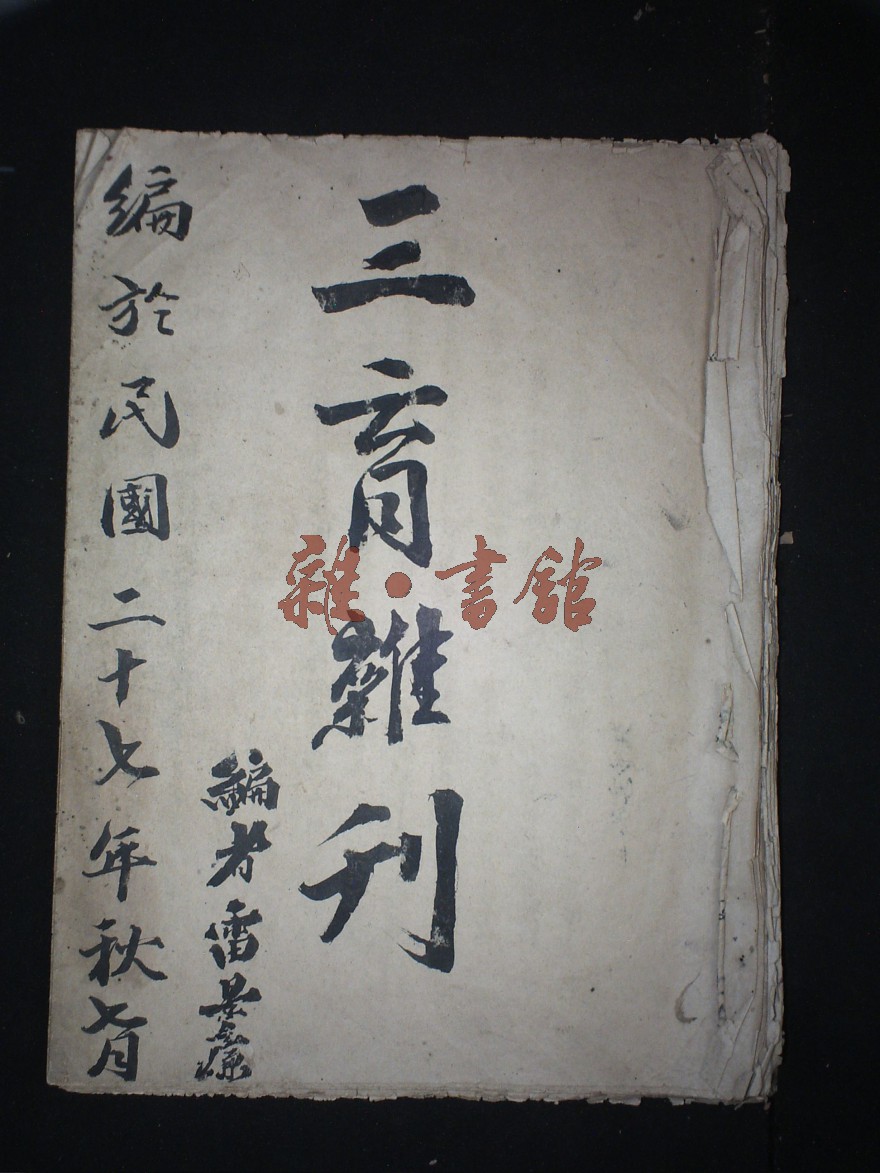 三育雜刊
編者雷景源
編於民國二十七年秋七月
雜·書館